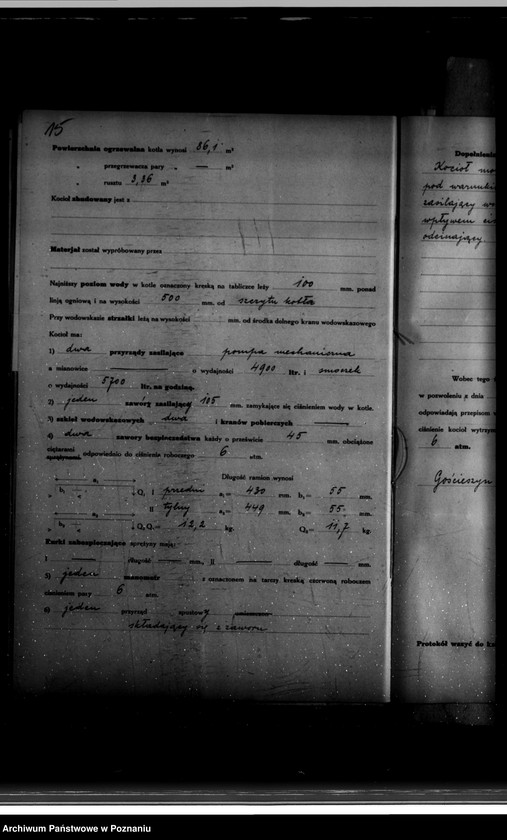 15
Powierzchnia ogrzewalna kotła wynosi 36,1 m²
„ przegrzewacza pary „ — m²
„ rusztu 3,36 m²
Kocioł zbudowany jest z
Materjał został wypróbowany przez
Najniższy poziom wody w kotle oznaczony kreską na tabliczce leży 100 mm. ponad
linją ogniową i na wysokości 500 mm. od szczytu kotła
Przy wodowskazie strzałki leżą na wysokości mm. od środka dolnego kranu wodowskazowego
Kocioł ma:
1) dwa przyrządy zasilające pompa mechaniczna
a mianowicie — o wydajności 4900 ltr. i smoczek
o wydajności 5700 ltr. na godzinę.
2) jeden zawory zasilający 105 mm. zamykające się ciśnieniem wody w kotle.
3) szkieł wodowskazowych dwa i kranów probierczych —
4) dwa zawory bezpieczeństwa każdy o prześwicie 45 mm. obciążone
ciężarami
sprężynami odpowiednio do ciśnienia roboczego 6 atm.
Długość ramion wynosi
a₁ b₁ Q₁ I przedni a₁ = 430 mm. b₁ = 55 mm.
II tylny a₂ = 449 mm. b₂ = 55 mm.
a₂ b₂ Q₂ Q₁ = 12,2 kg. Q₂ = 11,7 kg.
Rurki zabezpieczające sprężyny mają:
I — długość — mm., II — długość — mm.
5) jeden manometr z oznaczoną na tarczy kreską czerwoną roboczem
ciśnieniem pary 6 atm.
6) jeden przyrząd spustowy
składający się z zaworu
Dopełnienia
Kocioł
pod warunki
zasilający
wpływem
odcinający
Wobec tego
w pozwoleniu z dnia
odpowiadają przepisom
ciśnienie kocioł wytrzym
6 atm.
Gościeszyn
Protokół wszyć do
Archiwum Państwowe w Poznaniu